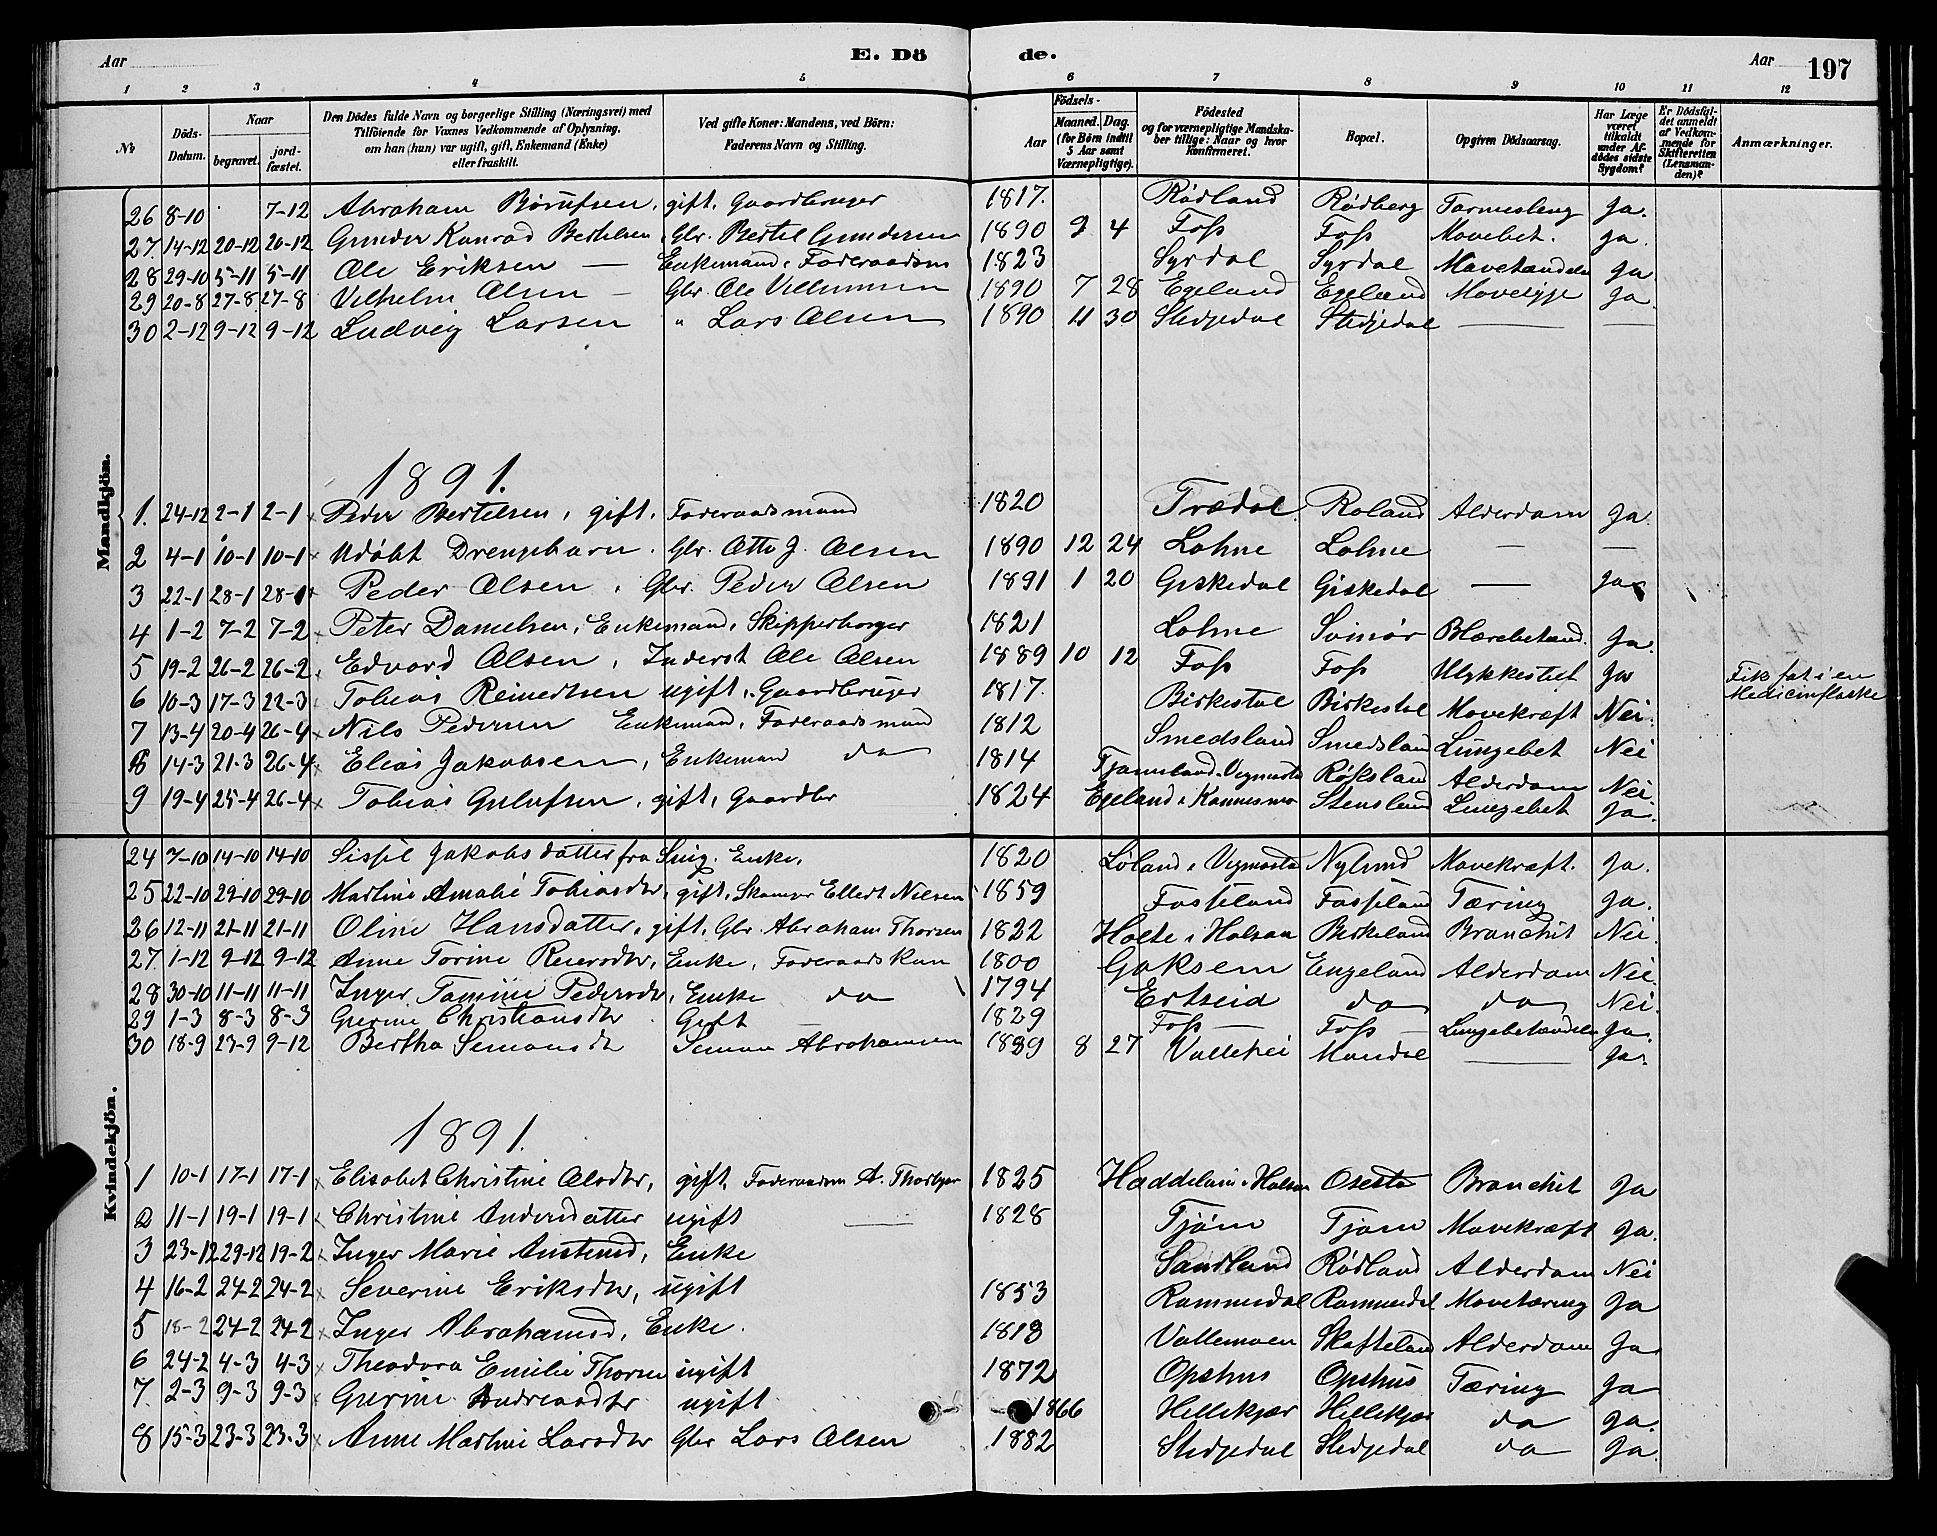 Aar E. Dö de. Aar 197
1 2 3 4 5 6 7 8 9 10 11 12
No Döds-Datum. Naar begravet. jordfæstet. Den Dödes fulde Navn og borgerlige Stilling (Næringsvei) med Tilföiende for Voxnes Vedkommende af Oplysning, om han (hun) var ugift, gift, Enkemand (Enke) eller fraskilt. Ved gifte Koner: Mandens, ved Börn: Faderens Navn og Stilling. Födsels- Aar Maaned. Dag. (for Börn indtil 5 Aar samt Værnepligtige). Födested og for værnepligtige Mandskaber tillige: Naar og hvor Konfirmeret. Bopæl. Opgiven Dödsaarsag. Har Læge været tilkaldt under Afdödes sidste Sygdom? Er Dödsfaldet anmeldt af Vedkommende for Skifteretten (Lensmanden)? Anmærkninger.
Mandkjön.
26 8-10 7-12 Abraham Börufsen, gift, Gaardbruger 1817. Rødland Rødberg Tarmesleng Ja.
27 14-12 20-12 20-12 Gunder Konrad Bertelsen, Gbr. Bertel Gundersen 1890 9 4 Foss Foss Mavebet. Ja.
28 29-10 5-11 5-11 Ole Eriksen — Enkemand, Foderaadsm 1823 Syrdal Syrdal Mavetændelse Ja
29 20-8 27-8 27-8 Vilhelm Olsen — Gbr. Ole Villumsen 1890 7 28 Egeland Egeland Mavesyge Ja.
30 2-12 9-12 9-12 Ludvig Larsen " Lars Olsen 1890 11 30 Stedjedal Stedjedal — —
1891.
1. 24-12 2-1 2-1 x Peder Bertelsen, gift, Foderaadsmand 1820 Trædal Roland Alderdom Ja.
2 4-1 10-1 10-1 x Udöbt Drengebarn. Gbr. Otto J. Olsen 1890 12 24 Lohne Lohne — —
3 22-1 28-1 28-1 x Peder Olsen, Gbr. Peder Olsen 1891 1 20 Giskedal Giskedal — Ja
4 1-2 7-2 7-2 x Peter Danielsen, Enkemand, Skipperborger 1821 Lohne Svinör Blærebetænd. Ja.
5 19-2 26-2 26-2 x Edvard Olsen, Inderst Ole Olsen 1889 10 12 Foss Foss Ulykkestilf Ja Fik fat i en Medicinflaske
6 10-3 17-3 22-3 x Tobias Reinertsen ugift, Gaardbruger 1817. Birkestøl Birkestøl Mavekræft Nei.
7 13-4 20-4 26-4 x Nils Pedersen Enkemand, Foderaadsmand 1812 Smedsland Smedsland Lungebet Nei
8 14-3 21-3 26-4 x Elias Jakobsen, Enkemand do 1814 Tjomsland i Vegmostø Røksland Alderdom Nei.
9 19-4 25-4 26-4 x Tobias Gulufsen, gift, Gaardbr 1824 Egeland i Kannesmo Stensland Lungebet Ja.
Kvindekjön.
24 7-10 14-10 14-10 Sissel Jakobsdatter fra Snig. Enke, 1820 Løland i Vegmostø Nylund Mavekræft. Ja.
25 22-10 29-10 29-10 Martine Amalie Tobiasdtr, gift, Skomar Ellert Nielsen 1859 Fasseland Fasseland Tæring Ja.
26 12-11 21-11 21-11 Oline Hansdatter, gift, Gbr. Abraham Thorsen 1822 Holte i Halsaa Birkeland Bronchit Nei.
27. 1-12 9-12 9-12 Anne Torine Reiersdtr, Enke, Foderaadskon 1800 Goksem Engeland Alderdom Nei.
28 30-10 11-11 11-11 Inger Tomine Pedersdtr, Enke do 1794 Ertseid do do Nei.
29 1-3 8-3 8-3 Gurine Christiansdtr Gift 1829 Foss — Foss — Lungebetændelse Ja.
30 18-9 23-9 9-12 Bertha Simonsdtr Simon Abrahamsen 1889 8 27 Vallehei Mandal — Ja.
1891.
1 10-1 17-1 17-1 x Elisabet Christine Olsdtr, gift, Foderaadsm A. Thorbjør 1825 Haddeland i Halsaa Osestø Bronchit Ja
2 11-1 19-1 19-1 x Christine Andersdatter ugift — 1828 Tjöm Tjom Mavekræft Ja.
3 23-12 29-12 19-2 x Inger Marie Anstensd, Enke Sandland Rødland Alderdom Nei
4 16-2 24-2 24-2 x Severine Eriksdtr, ugift 1853 Rammesdal Rammesdal Mavetæring Ja
5 18-2 24-2 24-2 x Inger Abrahamsd, Enke. 1818 Vallemoen Skofteland Alderdom Ja
6 24-2 4-3 4-3 x Theodora Emilie Thorsen ugift 1872 Opshus Opshus Tæring Ja
7. 2-3 9-3 9-3 x Gurine Andreasdtr ugift 1866 Hellekjær Hellekjær do Ja.
8 15-3 23-3 23-3 x Anne Martine Larsdtr Gbr Lars Olsen 1882 Stedjedal Stedjedal do Ja.